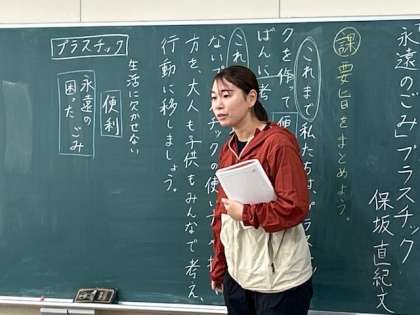 「永遠のごみ」プラスチック
保坂直紀 文
課 要旨をまとめよう。
これまで私たちは、プラスチ
クを作って便
ばんに考
これ
ない
方を、大人も子供もみんなで考え、
行動に移しましょう。
プラスチック
生活に欠かせない
便利
永遠の
困ったごみ